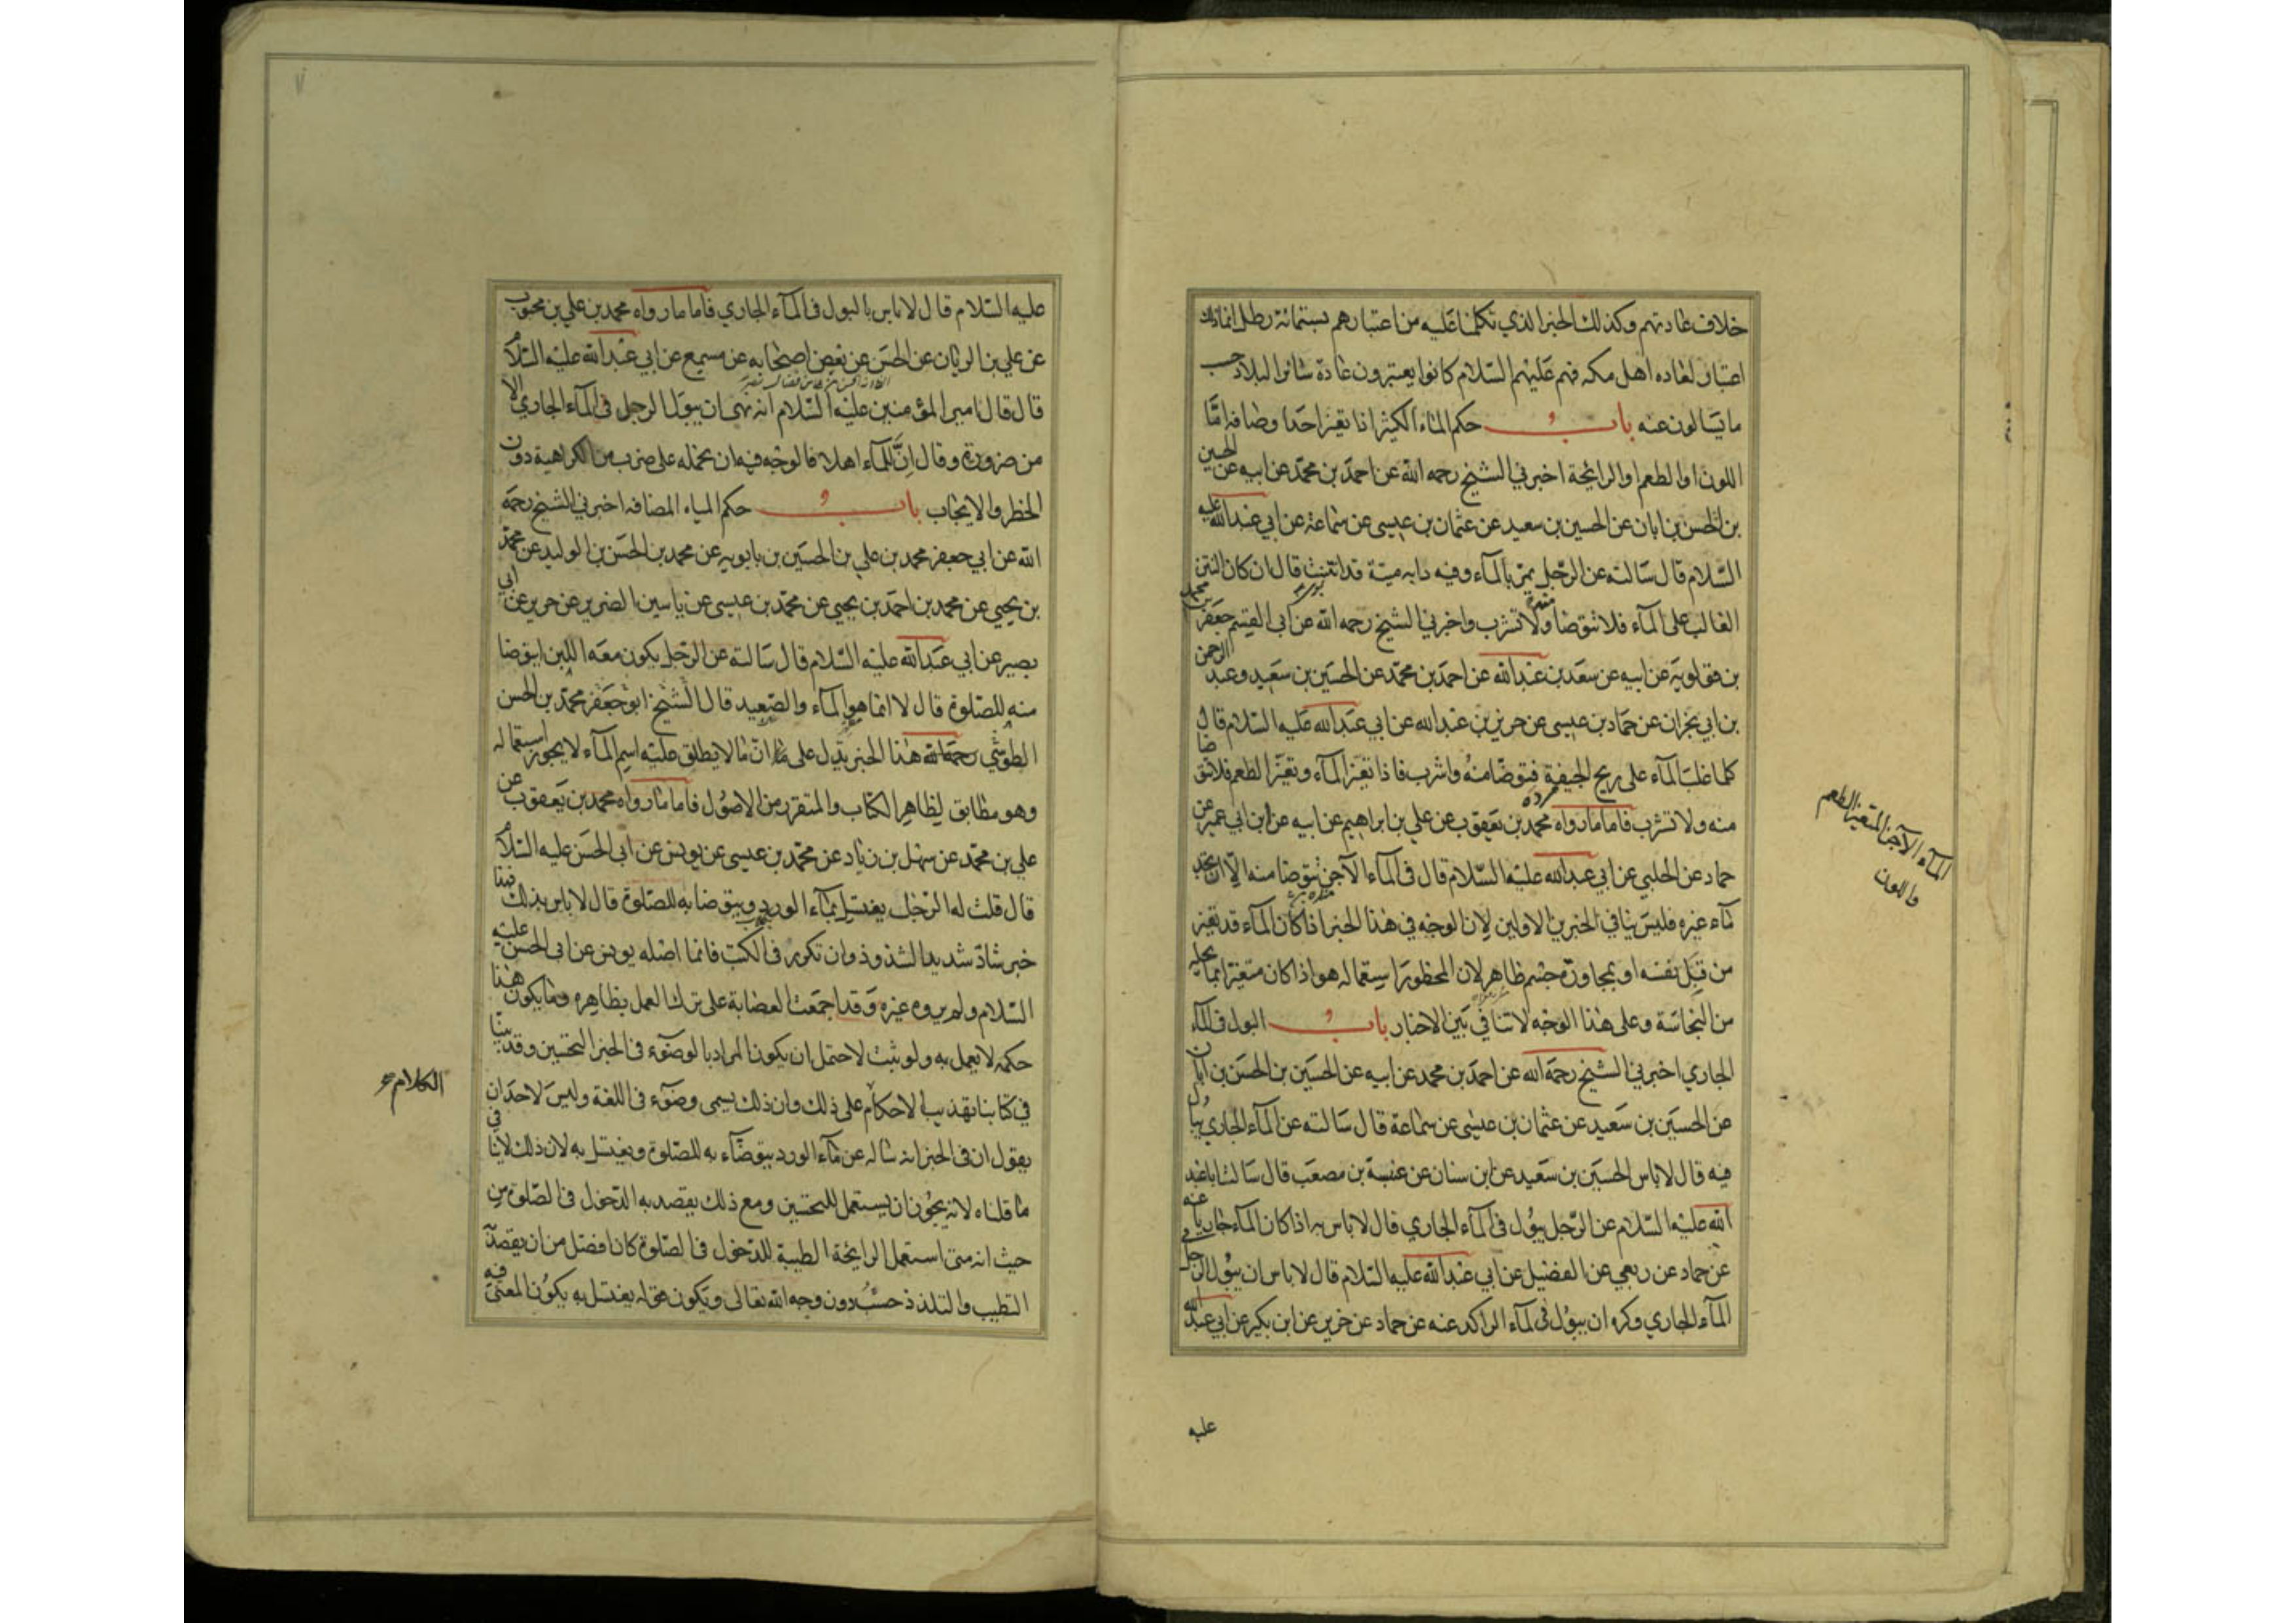 خلاف عادتهم وكذلك الخبر الذي تكلمنا عليه من اعتبارهم بستمائة رطل انما ذلك
اعتبار لعاده اهل مكه فهم عليهم السلام كانوا يعتبرون عادة سائر البلاد حسب
ما يسالون عنه باب حكم الماء الكثير اذا تغير احد اوصافه اما
اللون او الطعم او الرايحة اخبرني الشيخ رحمه الله عن احمد بن محمد عن ابيه عن الحسين
بن الحسن بن ابان عن الحسين بن سعيد عن عثمان بن عيسى عن سماعة عن ابي عبدالله عليه
السلام قال سالته عن الرجل يمر بالماء وفيه دابه ميتة قد انتنت قال ان كان النتن
الغالب على الماء فلا تتوضا ولا تشرب واخبرني الشيخ رحمه الله عن ابي القسم جعفر بن محمد
بن قولويه عن ابيه عن سعد بن عبدالله عن احمد بن محمد عن الحسين بن سعيد وعبد الرحمن
بن ابي نجران عن حماد بن عيسى عن حريز بن عبدالله عن ابي عبدالله عليه السلام قال
كلما غلب الماء على ريح الجيفة فتوضا منه واشرب فاذا تغير الماء وتغير الطعم فلا تتوضا
منه ولا تشرب فاما ما رواه محمد بن يعقوب عن علي بن ابراهيم عن ابيه عن ابن ابي عمير عن
حماد عن الحلبي عن ابي عبدالله عليه السلام قال في الماء الآجن تتوضا منه الا ان تجد
ماء غيره فليس ينافي الخبرين الاولين لان الوجه في هذا الخبر اذا كان الماء قد تغير
من قبل نفسه او بمجاورة جسم ظاهر لان المحظور استعماله هو اذا كان متغيرا بما يحله
من النجاسة وعلى هذا الوجه لا تنافي بين الاخبار باب البول في الماء
الجاري اخبرني الشيخ رحمه الله عن احمد بن محمد عن ابيه عن الحسين بن الحسن بن ابان
عن الحسين بن سعيد عن عثمان بن عيسى عن سماعة قال سالته عن الماء الجاري يبال
فيه قال لا باس الحسين بن سعيد عن ابن سنان عن عنبسة بن مصعب قال سالت ابا عبد
الله عليه السلام عن الرجل يبول في الماء الجاري قال لا باس به اذا كان الماء جاريا عنه
عن حماد عن ربعي عن الفضيل عن ابي عبدالله عليه السلام قال لا باس ان يبول الرجل في
الماء الجاري وكره ان يبول في الماء الراكد عنه عن حماد عن حريز عن ابن بكير عن ابي عبد الله
عليه
الماء الآجن المتغير الطعم
واللون
عليه السلام قال لا باس بالبول في الماء الجاري فاما ما رواه محمد بن علي بن محبوب
عن علي بن الريان عن الحسن عن بعض اصحابه عن مسمع عن ابي عبدالله عليه السلام
قال قال امير المؤمنين عليه السلام انه نهى ان يبول الرجل في الماء الجاري الا
من ضرورة وقال ان للماء اهلا فالوجه فيه ان نحمله على ضرب من الكراهية دون
الحظر والايجاب باب حكم المياه المضافه اخبرني الشيخ رحمه
الله عن ابي جعفر محمد بن علي بن الحسين بن بابويه عن محمد بن الحسن بن الوليد عن محمد
بن يحيى عن محمد بن احمد بن يحيى عن محمد بن عيسى عن ياسين الضرير عن حريز عن ابي
بصير عن ابي عبدالله عليه السلام قال سالته عن الرجل يكون معه اللبن ايتوضا
منه للصلوة قال لا انما هو الماء والصعيد قال الشيخ ابو جعفر محمد بن الحسن
الطوسي رحمه الله هذا الخبر يدل على ان ما لا يطلق عليه اسم الماء لا يجوز استعماله
وهو مطابق لظاهر الكتاب والمتقرر من الاصول فاما ما رواه محمد بن يعقوب عن
علي بن محمد عن سهل بن زياد عن محمد بن عيسى عن يونس عن ابي الحسن عليه السلام
قال قلت له الرجل يغتسل بماء الورد ويتوضا به للصلوة قال لا باس بذلك فهذا
خبر شاذ شديد الشذوذ وان تكرر في الكتب فانما اصله يونس عن ابي الحسن عليه
السلام ولم يروه غيره وقد اجمعت العصابة على ترك العمل بظاهره وما يكون هذا
حكمه لا يعمل به ولو ثبت لاحتمل ان يكون المراد بالوضوء في الخبر التحسين وقد بينا
في كتابنا تهذيب الاحكام على ذلك وان ذلك يسمى وضوء في اللغة وليس لاحد ان
يقول ان في الخبر انه ساله عن ماء الورد يتوضاء به للصلوة ويغتسل به لان ذلك لا ينافي
ما قلناه لانه يجوز ان يستعمل للتحسين ومع ذلك يقصد به الدخول في الصلوة من
حيث انه متى استعمل الرايحة الطيبة للدخول في الصلوة كان افضل من ان يقصد فيه
التطيب والتلذذ حسب دون وجه الله تعالى ويكون قوله يغتسل به يكون المعنى
الكلام